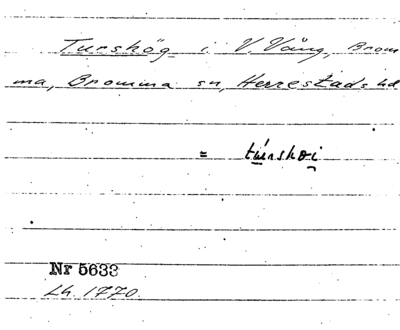 Turshög i V. Vång, Brom
ma, Bromma sn, Herrestads hd
= túrshɵi
Nr 5633
Lh. 1770.